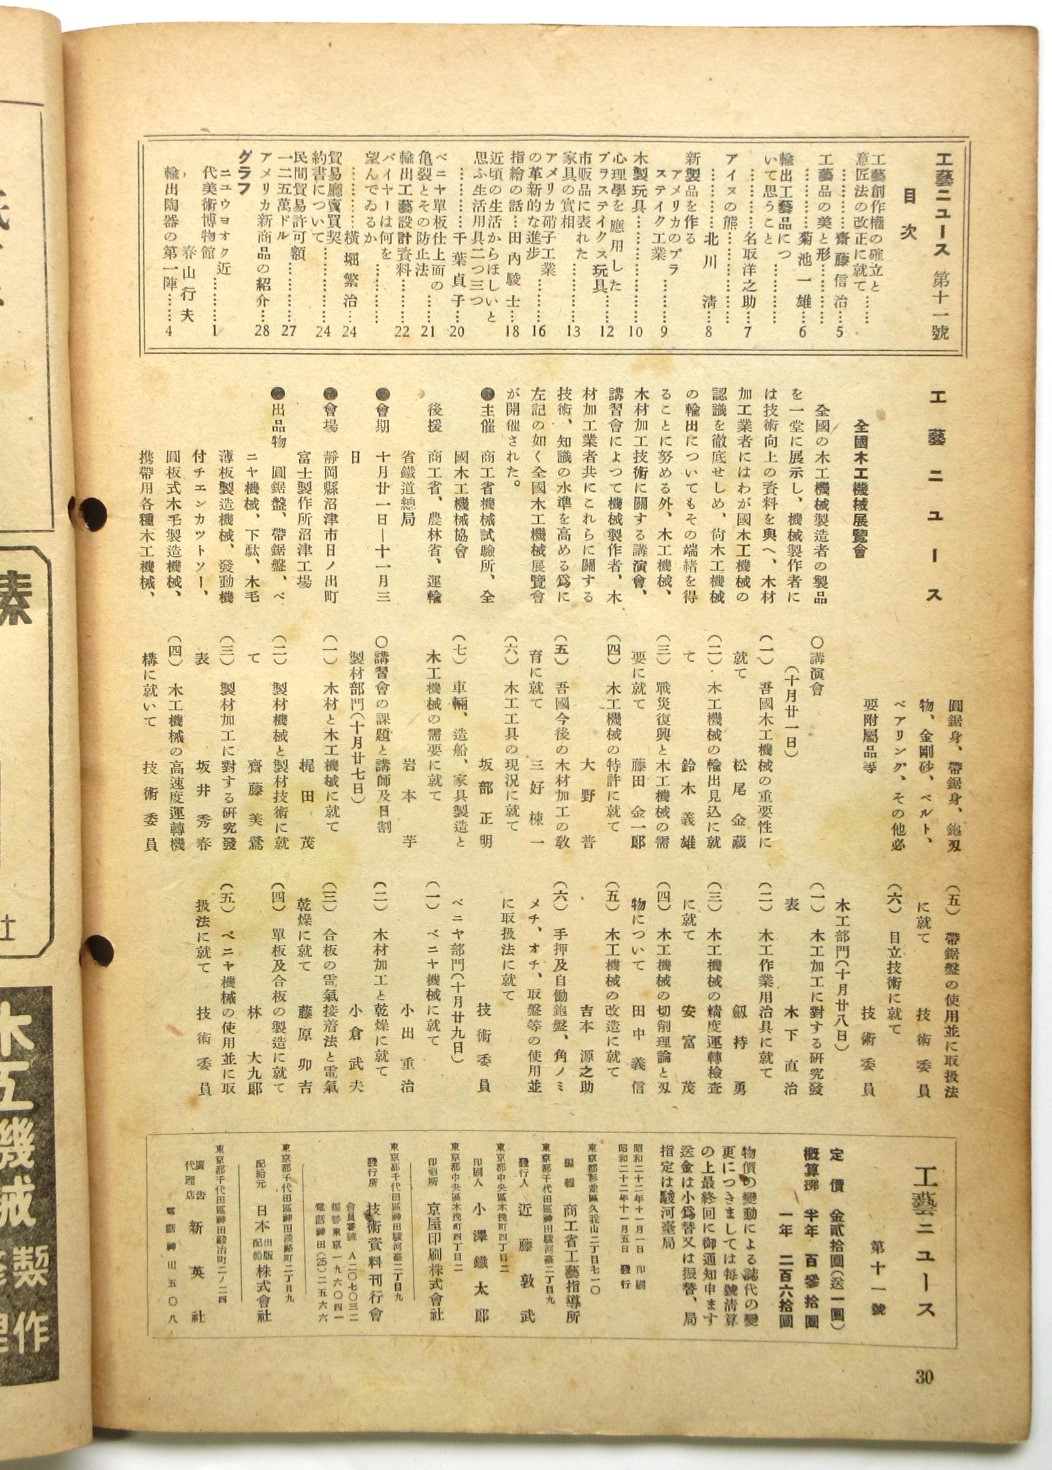 工藝ニュース 第十一號
目次
工藝創作權の確立と
意匠法の改正に就て
………齋藤信治……5
工藝品の美と形…………
………菊池一雄……6
輸出工藝品につ
いて思うこと…………
………名取洋之助……7
アイヌの熊…………
………北川 清……8
新製品を作る
アメリカのプラ
ステイク工業…………9
木製玩具…………10
心理學を應用した
プラステイクス玩具……12
市販品に表れた
家具の實相…………13
アメリカ硝子工業
の革新的な進歩………16
指繪の話…田内駿士……18
近頃の生活からほしいと
思ふ生活用具二つ三つ
………千葉貞子……20
ベニヤ單板仕上面の
亀裂とその防止法……21
輸出工藝設計資料……22
バイヤーは何を
望んでゐるか…………
………橫堀繁治……24
貿易廳賣買契
約書について………24
民間貿易許可額
一二五萬ドル…………27
アメリカ新商品の紹介……28
グラフ
ニユウヨオク近
代美術博物館…………1
春山行夫
輸出陶器の第一陣……4
工藝ニュース
全國木工機械展覽會
全國の木工機械製造者の製品
を一堂に展示し、機械製作者に
は技術向上の資料を與へ、木材
加工業者にはわが國木工機械の
認識を徹底せしめ、尙木工機械
の輸出についてもその端緒を得
ることに努める外、木工機械、
木材加工技術に關する講演會、
講習會によつて機械製作者、木
材加工業者共にこれらに關する
技術、知識の水準を高める爲に
左記の如く全國木工機械展覽會
が開催された。
●主催 商工省機械試驗所、全
國木工機械協會
後援 商工省、農林省、運輸
省鐵道總局
●會期 十月廿一日—十一月三
日
●會場 靜岡縣沼津市日ノ出町
富士製作所沼津工場
●出品物 圓鋸盤、帶鋸盤、ベ
ニヤ機械、下駄、木毛
薄板製造機械、發動機
付チエンカツトソー、
圓板式木毛製造機械、
携帶用各種木工機械、
圓鋸身、帶鋸身、鉋刃
物、金剛砂、ベルト、
ベアリング、その他必
要附屬品等
〇講演會
(十月廿一日)
(一) 吾國木工機械の重要性に
就て 松尾金藏
(二) 木工機械の輸出見込に就
て 鈴木義雄
(三) 戰災復興と木工機械の需
要に就て 藤田金一郎
(四) 木工機械の特許に就て
大野晋
(五) 吾國今後の木材加工の敎
育に就て 三好棟一
(六) 木工工具の現況に就て
坂部正明
(七) 車輛、造船、家具製造と
木工機械の需要に就て
岩本芋
〇講習會の課題と講師及日割
製材部門(十月廿七日)
(一) 木材と木工機械に就て
梶田茂
(二) 製材機械と製材技術に就
て 齋藤美鶯
(三) 製材加工に對する硏究發
表 坂井秀春
(四) 木工機械の高速度運轉機
構に就いて 技術委員
(五) 帶鋸盤の使用並に取扱法
に就て 技術委員
(六) 目立技術に就て
技術委員
木工部門(十月廿八日)
(一) 木工加工に對する硏究發
表 木下直治
(二) 木工作業用治具に就て
劒持勇
(三) 木工機械の精度運轉檢査
に就て 安富茂
(四) 木工機械の切削理論と刄
物について 田中義信
(五) 木工機械の改造に就て
吉本源之助
(六) 手押及自働鉋盤、角ノミ
メチ、オチ、取盤等の使用並
に取扱法に就て
技術委員
ベニヤ部門(十月廿九日)
(一) ベニヤ機械に就て
小出重治
(二) 木材加工と乾燥に就て
小倉武夫
(三) 合板の電氣接着法と電氣
乾燥に就て 藤原卯吉
(四) 單板及合板の製造に就て
林大九郎
(五) ベニヤ機械の使用並に取
扱法に就て 技術委員
工藝ニュース 第十一號
定價 金貳拾圓(送一圓)
槪算拂 半年 百參拾圓
一年 二百六拾圓
物價の變動による誌代の變
更につきましては每號淸算
の上最終回に御通知申ます
送金は小爲替又は振替、局
指定は駿河臺局
昭和二十二年十一月一日 印刷
昭和二十二年十一月五日 發行
東京都杉並區久我山二丁目七一〇
編輯 商工省工藝指導所
東京都千代田區神田駿河臺二丁目九
發行人 近藤敦武
東京都中央區木挽町四丁目二
印刷人 小澤鐵太郎
東京都中央區木挽町四丁目二
印刷所 京屋印刷株式會社
東京都千代田區神田駿河臺二丁目九
發行所 技術資料刊行會
會員番號 A二〇七〇三二
振替東京一九六〇四一
電話神田(25)二五六六
東京都千代田區神田淡路町二丁目九
配給元 日本出版配給株式會社
東京都千代田區神田鍛冶町二ノ二四
廣告代理店 新英社
電話神田五〇八
30
社
木工機械
製作